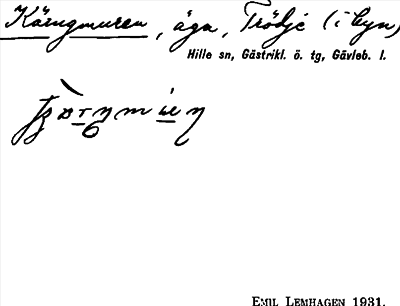 Käringmuren, äga, Trödje (i byn)
Hille sn, Gästrikl. ö. tg, Gävleb. l.
EMIL LEMHAGEN 1931.